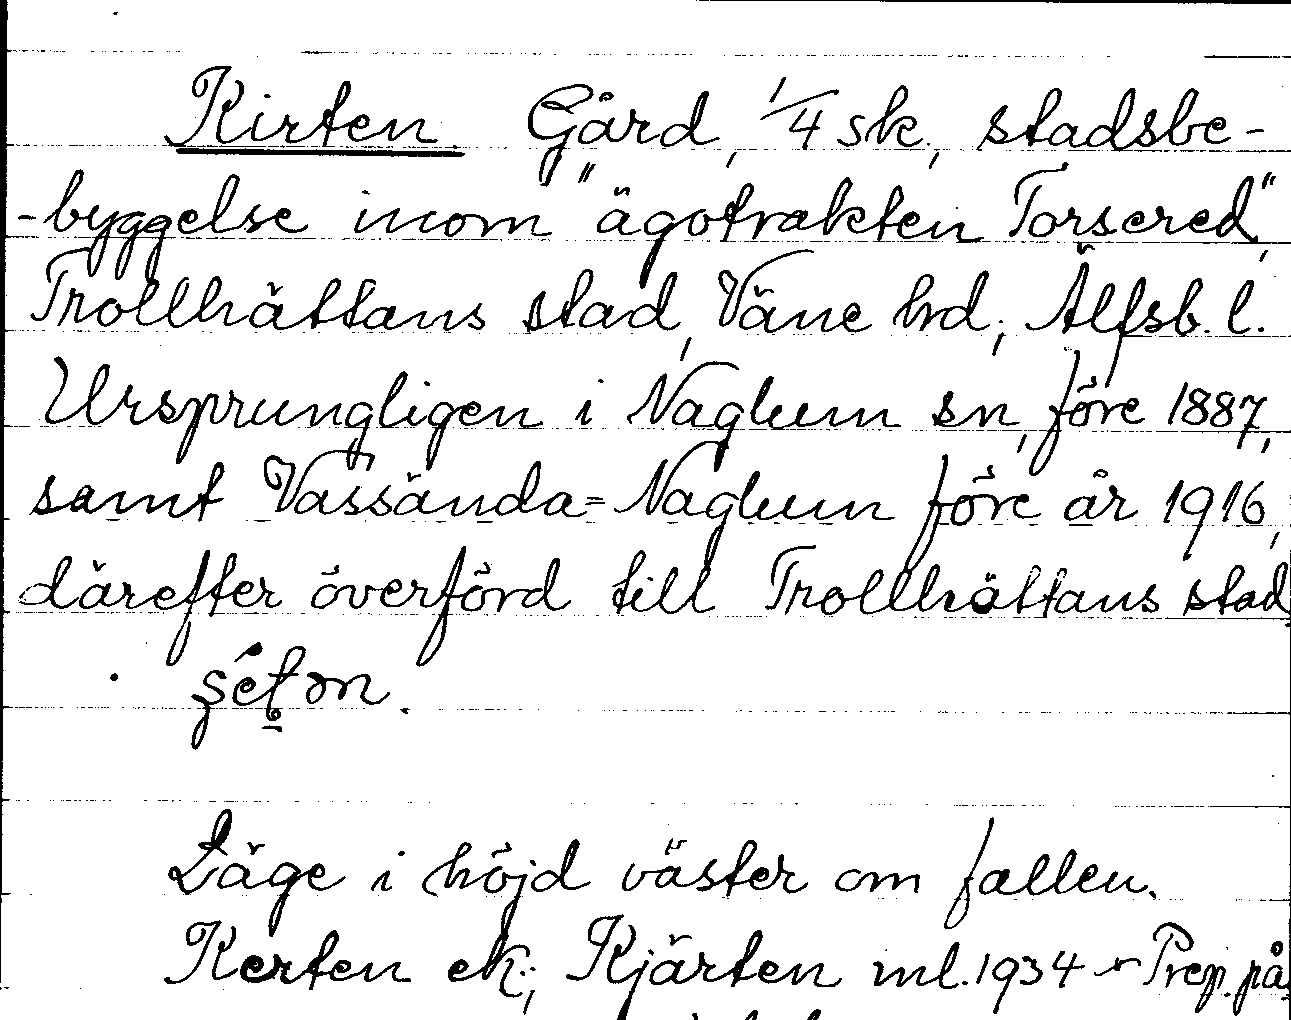 Kirten. Gård, 1/4 sk, stadsbe-
-byggelse inom "ägotrakten Torsered",
Trollhättans stad, Väne hd, Älfsb. l.
Ursprungligen i Naglum sn, före 1887,
samt Vassända=Naglum före år 1916,
därefter överförd till Trollhättans stad
Läge i höjd väster om fallen.
Kerten ek.; Kjärten ml. 1934 Prep. på